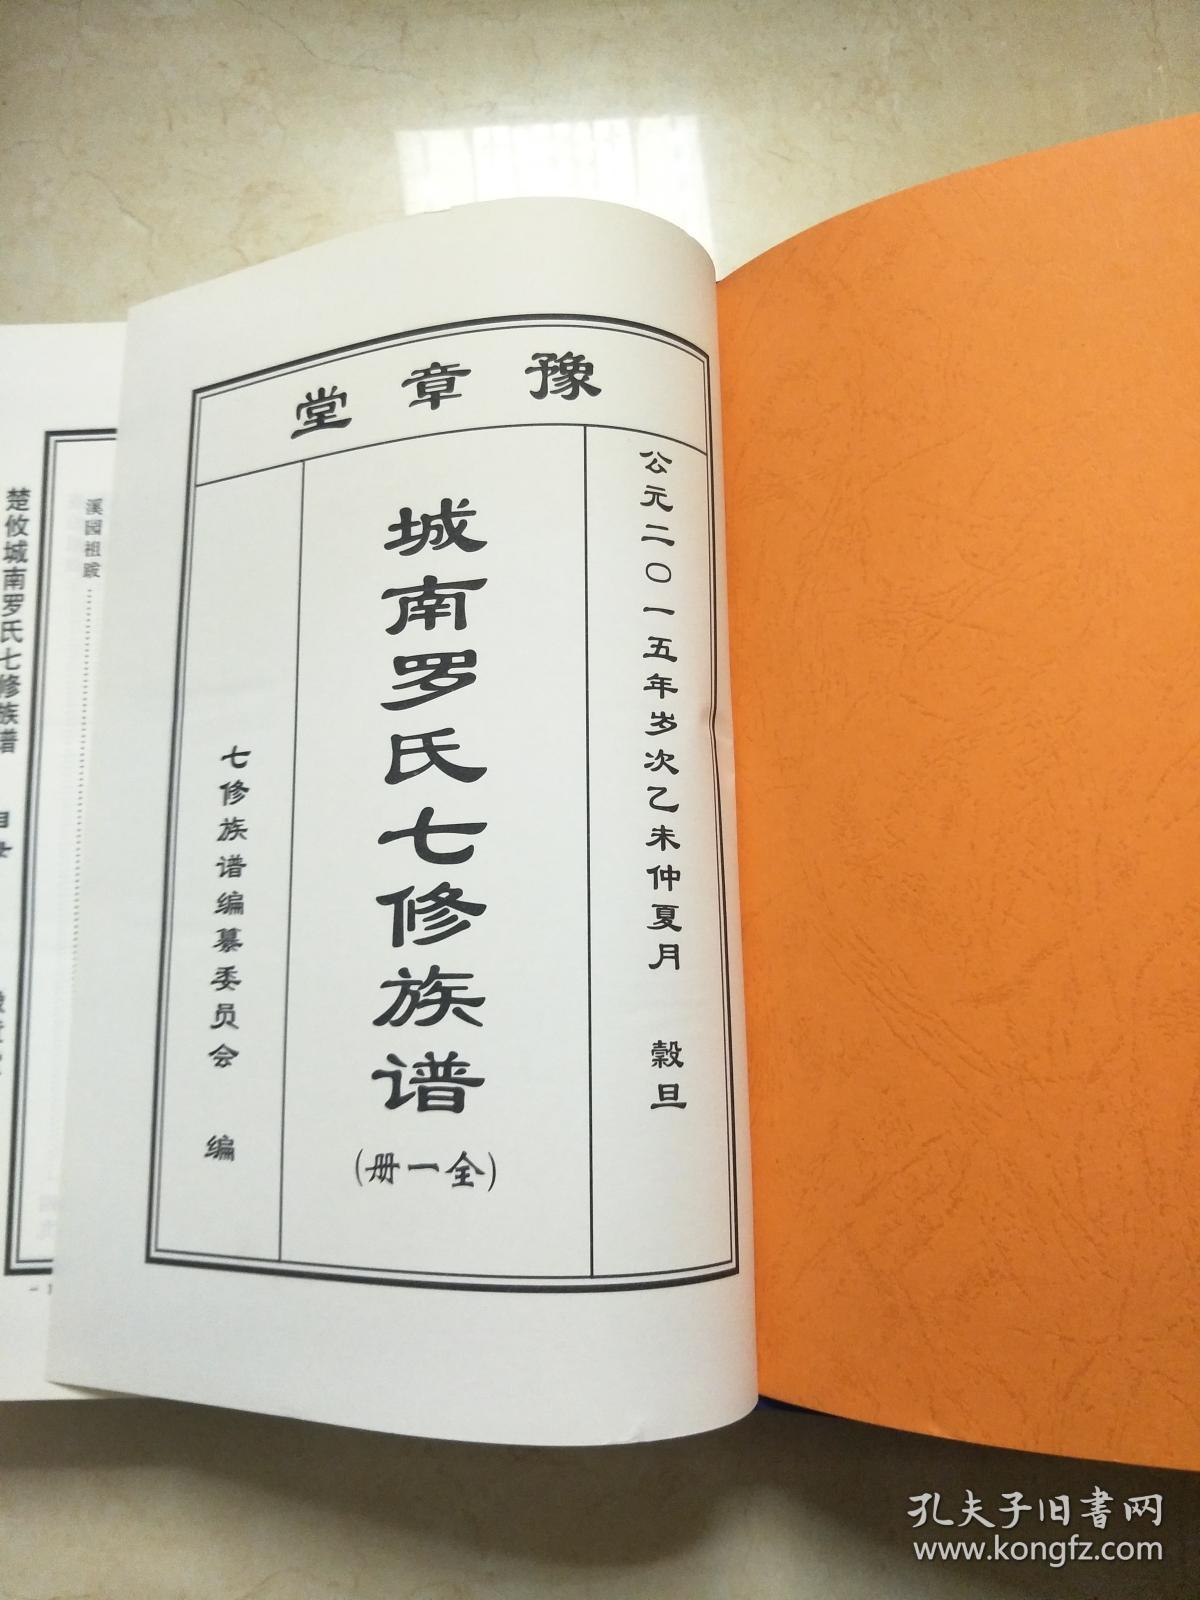 豫章堂
公元二〇一五年岁次乙未仲夏月 穀旦
城南罗氏七修族谱
(全一册)
七修族谱编纂委员会 编
溪园祖跋
楚攸城南罗氏七修族谱 目录
孔夫子旧书网
www.kongfz.com